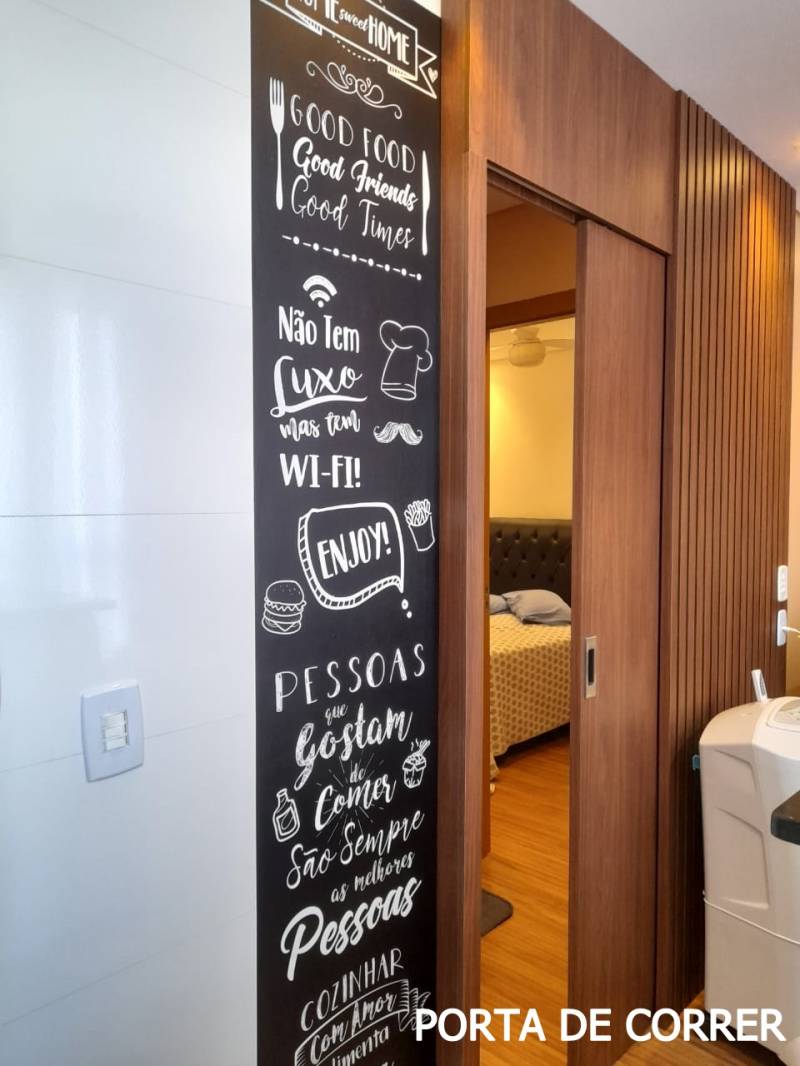 sweet HOME
GOOD FOOD
Good Friends
Good Times
Não Tem
Luxo
mas tem
WI-FI!
ENJOY!
PESSOAS
que
Gostam
de
Comer
São Sempre
as melhores
Pessoas
COZINHAR
Com Amor
PORTA DE CORRER